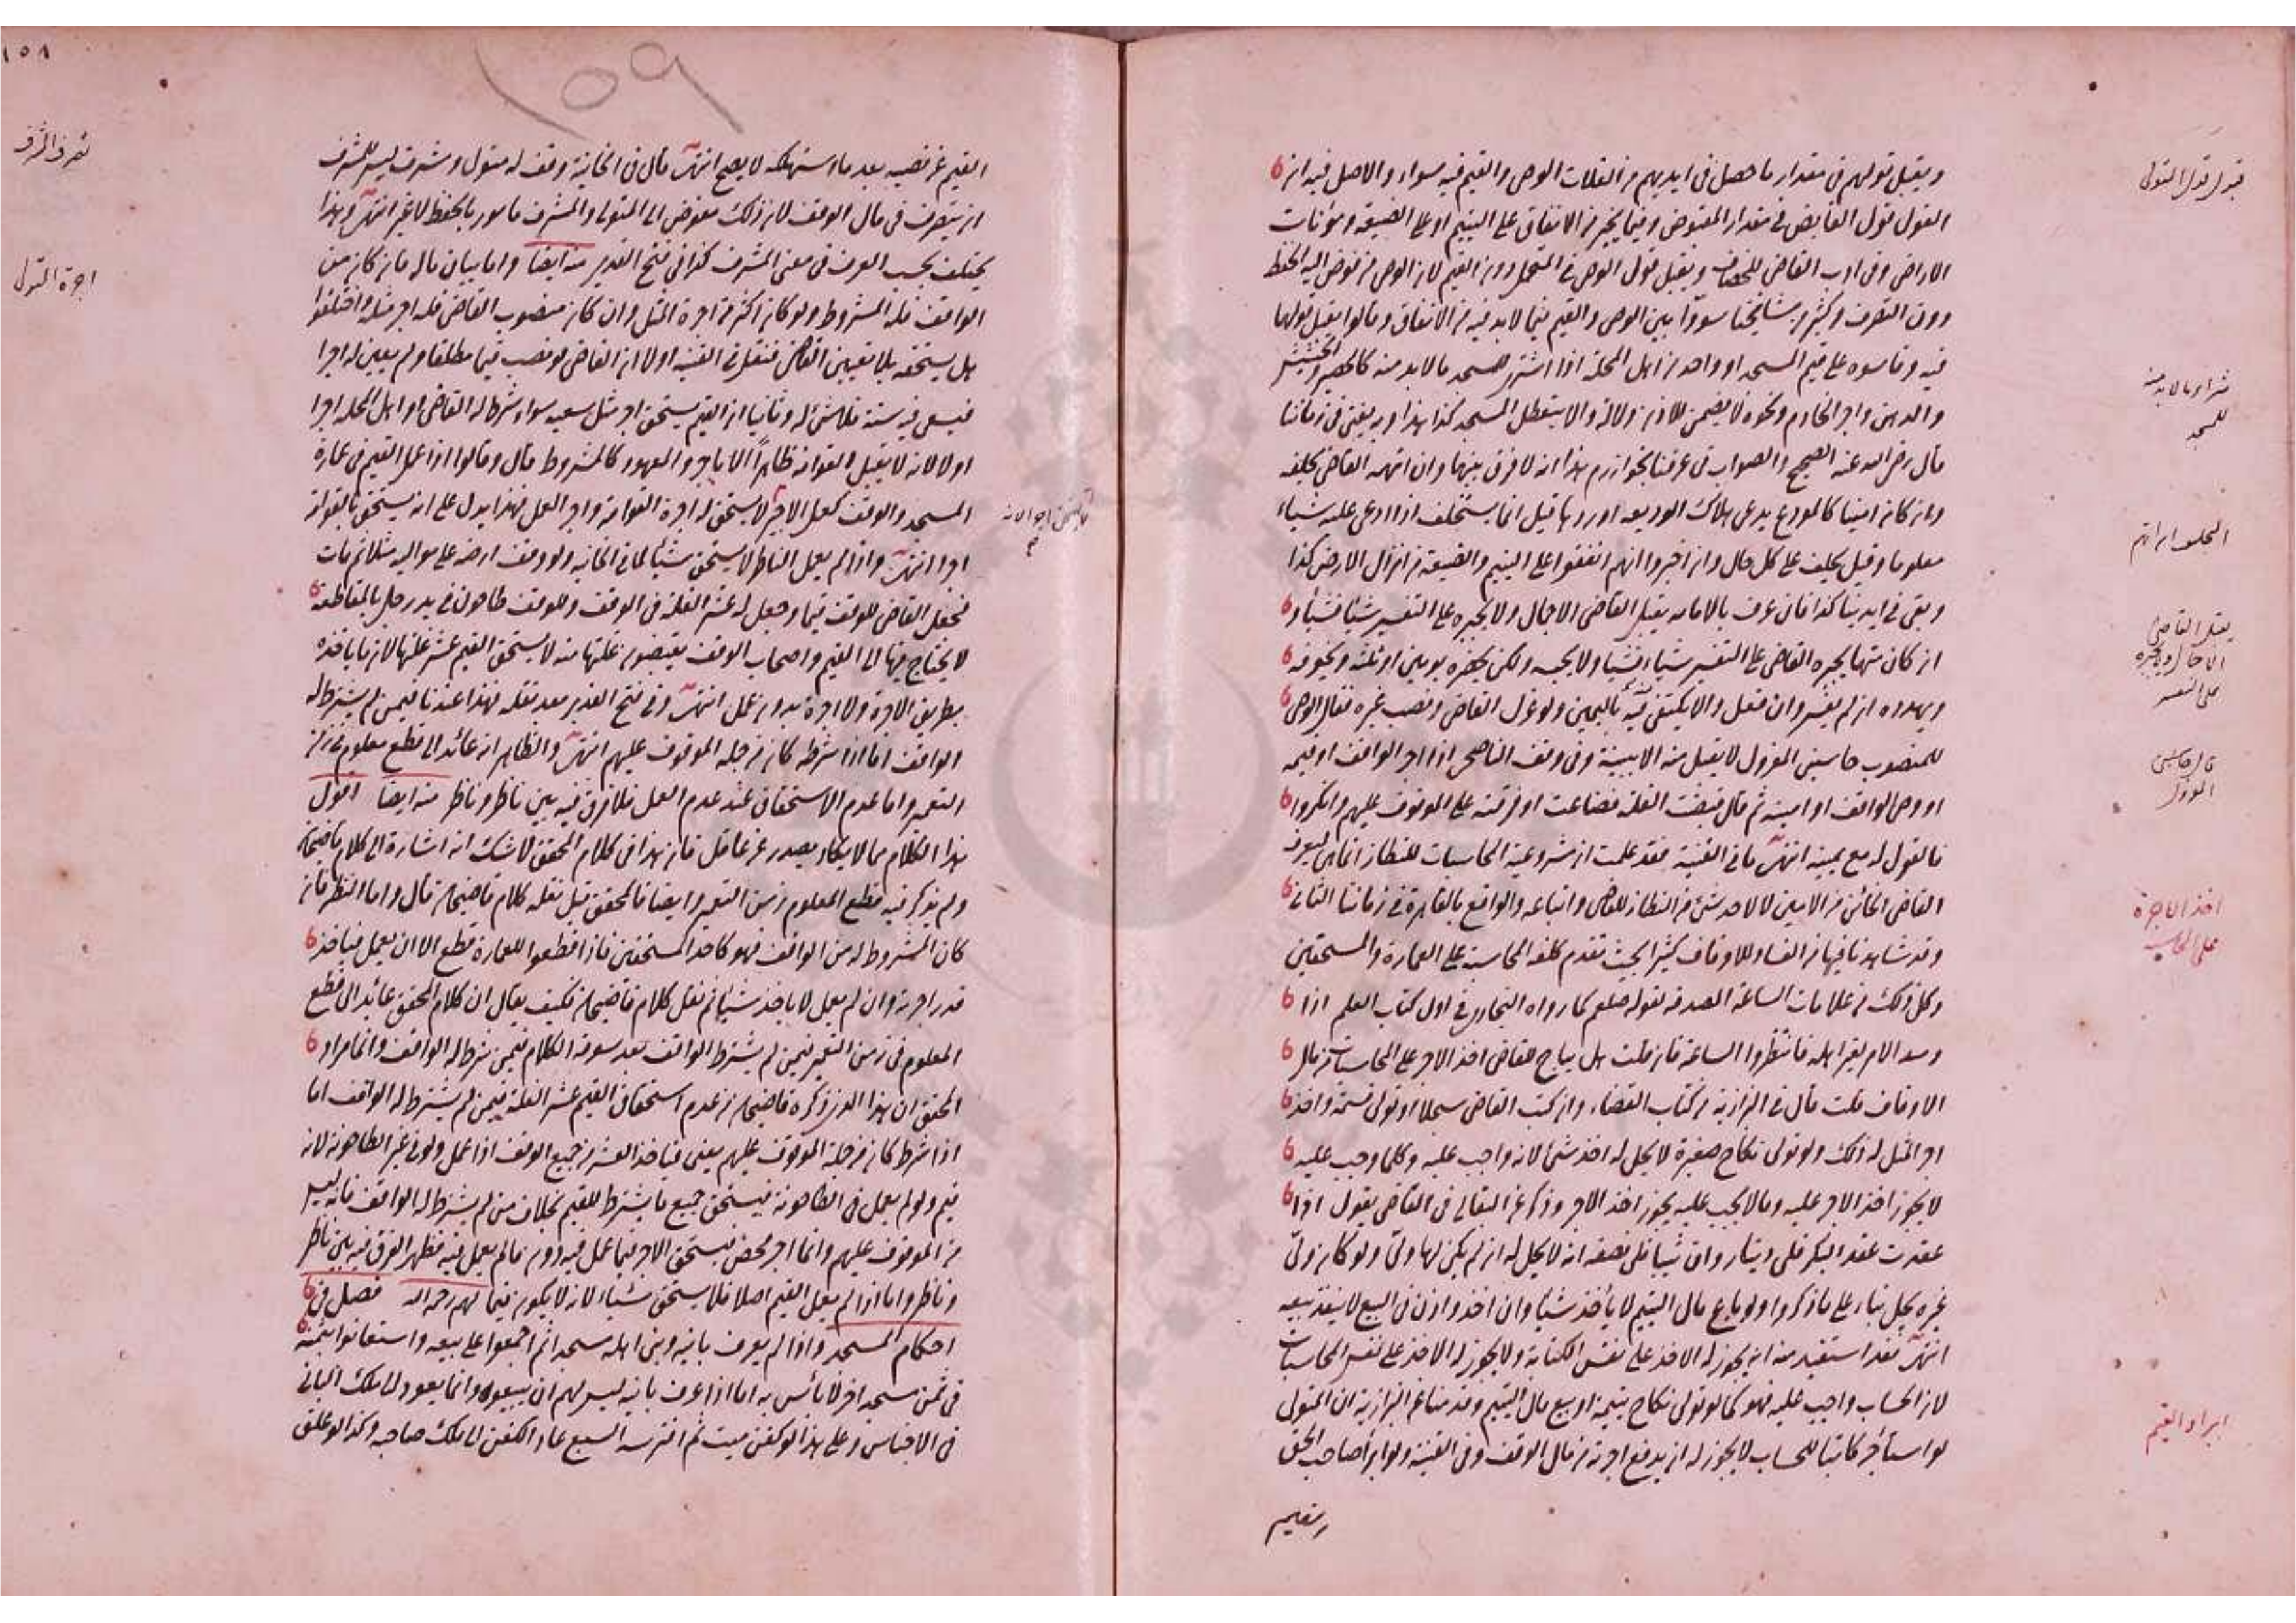 ويقبل قولهم في مقدار ما حصل في ايديهم من الغلات الوصي والقيم فيه سواء والاصل فيه ان
القول قول القابض في مقدار المقبوض وفيما يخبر من الانفاق على اليتيم او على الضيعة ومؤنات
الاراضي وفي ادب القاضي للخصاف ويقبل قول الوصي في المحتمل دون القيم لان الوصي من فوض اليه الحفظ
دون التصرف وكثير من مشايخنا سووا بين الوصي والقيم فيما لا بد فيه من الانفاق وقالوا يقبل قولهما
فيه وقاسوه على قيم المسجد او واحد من اهل المحلة اذا اشترى للمسجد ما لا بد منه كالحصير والحشيش
والدهن واجر الخادم ونحوه لا يضمن للاذن دلالة والا يتعطل المسجد كذا هذا وبه يفتى في زماننا
قال رضي الله عنه الصحيح والصواب في عرفنا بخوارزم هذا انه لا فرق بينهما وان اتهمه القاضي يحلفه
وان كان امينا كالمودع يدعي هلاك الوديعة او ردها قيل انما يستحلف اذا ادعى عليه شياء
معلوما وقيل يحلف على كل حال وان اخبروا انهم انفقوا على اليتيم والضيعة من انزال الارض كذا
وبقي في ايدينا كذا فان عرف بالامانة يقبل القاضي الاجمال ولا يجبره على التفسير شيئا فشياء و
ان كان متهما يجبره القاضي على التفسير شياء فشيا ولا يحبسه ولكن يحضره يومين او ثلثة ويخوفه
ويهدده ان لم يفسر وان فعل والا يكتفي فيه باليمين ولو عزل القاضي ونصب غيره فقال الوصي
للمنصوب حاسبني المعزول لا يقبل منه الا ببينة وفي وقف الناصحي اذا اجر الواقف او قيمه
او وصي الواقف او امينه ثم قال قبضت الغلة فضاعت او فرقت على الموقوف عليهم وانكروا
فالقول له مع يمينه انتهى ما في القنية فقد علمت ان مشروعية المحاسبات للنظار انما هي ليعرف
القاضي الخائن من الامين لا لاخذ شئ من النظار للقاضي واتباعه والواقع بالقاهرة في زماننا الثاني
وقد شاهدنا فيها من الفساد للاوقاف كثيرا بحيث تقدم كلفة المحاسبة على العمارة والمستحقين
وكل ذلك من علامات الساعة المصدقة لقوله صلعم كما رواه البخاري في اول كتاب العلم اذا
وسد الامر لغير اهله فانتظروا الساعة فان قلت هل يباح للقاضي اخذ الاجر على المحاسبات من مال
الاوقاف قلت قال في البزازية من كتاب القضاء وان كتب القاضي سجلا او تولى قسمة واخذ
اجر المثل له ذلك ولو تولى نكاح صغيرة لا يحل له اخذ شئ لانه واجب عليه وكلما وجب عليه
لا يجوز اخذ الاجر عليه وما لا يجب عليه يجوز اخذ الاجر وذكر عن البقالي في القاضي يقول اذا
عقدت عقد البكر فلي دينار وان ثيبا فلي نصفه انه لا يحل له ان لم يكن لها ولي ولو كان ولي
غيره يحل بناء على ما ذكروا ولو باع مال اليتيم لا يأخذ شيا وان اخذ واذن في البيع لا ينفذ بيعه
انتهى فقد استفيد منه انه يجوز له الاخذ على نفس الكتابة ولا يجوز له الاخذ على نفس المحاسبات
لان الحساب واجب عليه فهو كما لو تولى نكاح يتيمة او بيع مال اليتيم وقدمنا عن البزازية ان المتولي
لو استأجر كاتبا للحساب لا يجوز له ان يدفع اجرته من مال الوقف وفي القنية ولو ابرأ صاحب الحق
القيم
قبول قول المتولي
شراء ما لا بد منه
للمسجد
التحليف ان اتهم
يقبل القاضي
الاجمال ويجبره
على التفسير
قال حاسبني
المعزول
اخذ الاجرة
على المحاسبة
ابراء القيم
١٥٨
١٥٩
القيم عن نصيبه بعد ما استهلكه لا يصح انتهى قال في الخانية وقف له متول ومشرف ليس للمشرف
ان يتصرف في مال الوقف لان ذلك مفوض الى المتولي والمشرف مأمور بالحفظ لا غير انتهى وهذا
يختلف بحسب العرف في معنى المشرف كذا في فتح القدير منه ايضا واما بيان ماله فان كان من
الواقف فله المشروط ولو كان اكثر من اجرة المثل وان كان منصوب القاضي فله اجر مثله واختلفوا
هل يستحقه بلا تعيين القاضي فنقل في القنية اولا ان القاضي لو نصب قيما مطلقا ولم يعين له اجرا
فسعى فيه سنة فلا شئ له وثانيا ان القيم يستحق اجر مثل سعيه سواء شرط له القاضي او اهل المحلة اجرا
او لا لانه لا يقبل القوامة ظاهرا الا باجر والمعهود كالمشروط قال وقالوا اذا عمل القيم في عمارة
المسجد والوقف كعمل الاجير لا يستحق له اجرة القوامة واجر العمل فهذا يدل على انه يستحق بالقوامة
اجرا انتهى واذا لم يعمل الناظر لا يستحق شيئا لما في الخانية ولو وقف ارضه على مواليه مثلا ثم مات
فجعل القاضي للوقف قيما وجعل له عشر الغلة في الوقف وللوقف طاحون في يد رجل بالمقاطعة
لا يحتاج فيها الى القيم واصحاب الوقف يقبضون غلتها منه لا يستحق القيم عشر غلتها لان ما ياخذه
بطريق الاجرة ولا اجرة بدون عمل انتهى وفي فتح القدير بعد نقله فهذا عندنا فيمن لم يشترط له
الواقف اما اذا شرطه كان من جملة الموقوف عليهم انتهى والظاهر انه عائد الى قطع معلوم في زمن
التعمير واما عدم الاستحقاق عند عدم العمل فلا فرق فيه بين ناظر وناظر منه ايضا اقول
هذا الكلام مما لا يكاد يصدر عن عاقل فان هذا في كلام المحقق لا شك انه اشارة الى كلام قاضيخان
ولم يذكر فيه قطع المعلوم زمن التعمير وايضا فالمحقق قبل نقله كلام قاضيخان قال واما الناظر فان
كان المشروط له من الواقف فهو كاحد المستحقين فاذا قطعوا للعمارة قطع الا ان يعمل فياخذ
قدر اجرته وان لم يعمل لا ياخذ شيئا ثم نقل كلام قاضيخان فكيف يقال ان كلام المحقق عائد الى قطع
المعلوم في زمن التعمير فيمن لم يشترط الواقف بعد سوقه الكلام فيمن شرط له الواقف وانما مراد
المحقق ان هذا الذي ذكره قاضيخان من عدم استحقاق القيم عشر الغلة فيمن لم يشترط له الواقف اما
اذا شرط كان من جملة الموقوف عليهم يعني فياخذ العشر من جميع الوقف اذا عمل ولو في غير الطاحونة لانه
قيم ولو لم يعمل في الطاحونة فيستحق جميع ما يشترط للقيم بخلاف من لم يشترط له الواقف فانه ليس
من الموقوف عليهم وانما اجر محض فيستحق الاجر فيما عمل فيه دون ما لم يعمل فيه فظهر الفرق فيه بين ناظر
وناظر واما اذا لم يعمل القيم اصلا فلا يستحق شياء لانه لا يكون قيما رحمه الله فصل في
احكام المسجد واذا لم يعرف بانيه وبنى اهله مسجدا ثم اجمعوا على بيعه واستعانوا بثمنه
في ثمن مسجد اخر لا بأس به اما اذا عرف بانيه ليس لهم ان يبيعوه وانما يعود الى ملك الباني
في الاجناس وعلى هذا لو كفن ميت ثم افترسه السبع عاد الكفن الى ملك صاحبه وكذا لو علق
تصرف المشرف
اجرة المتولي